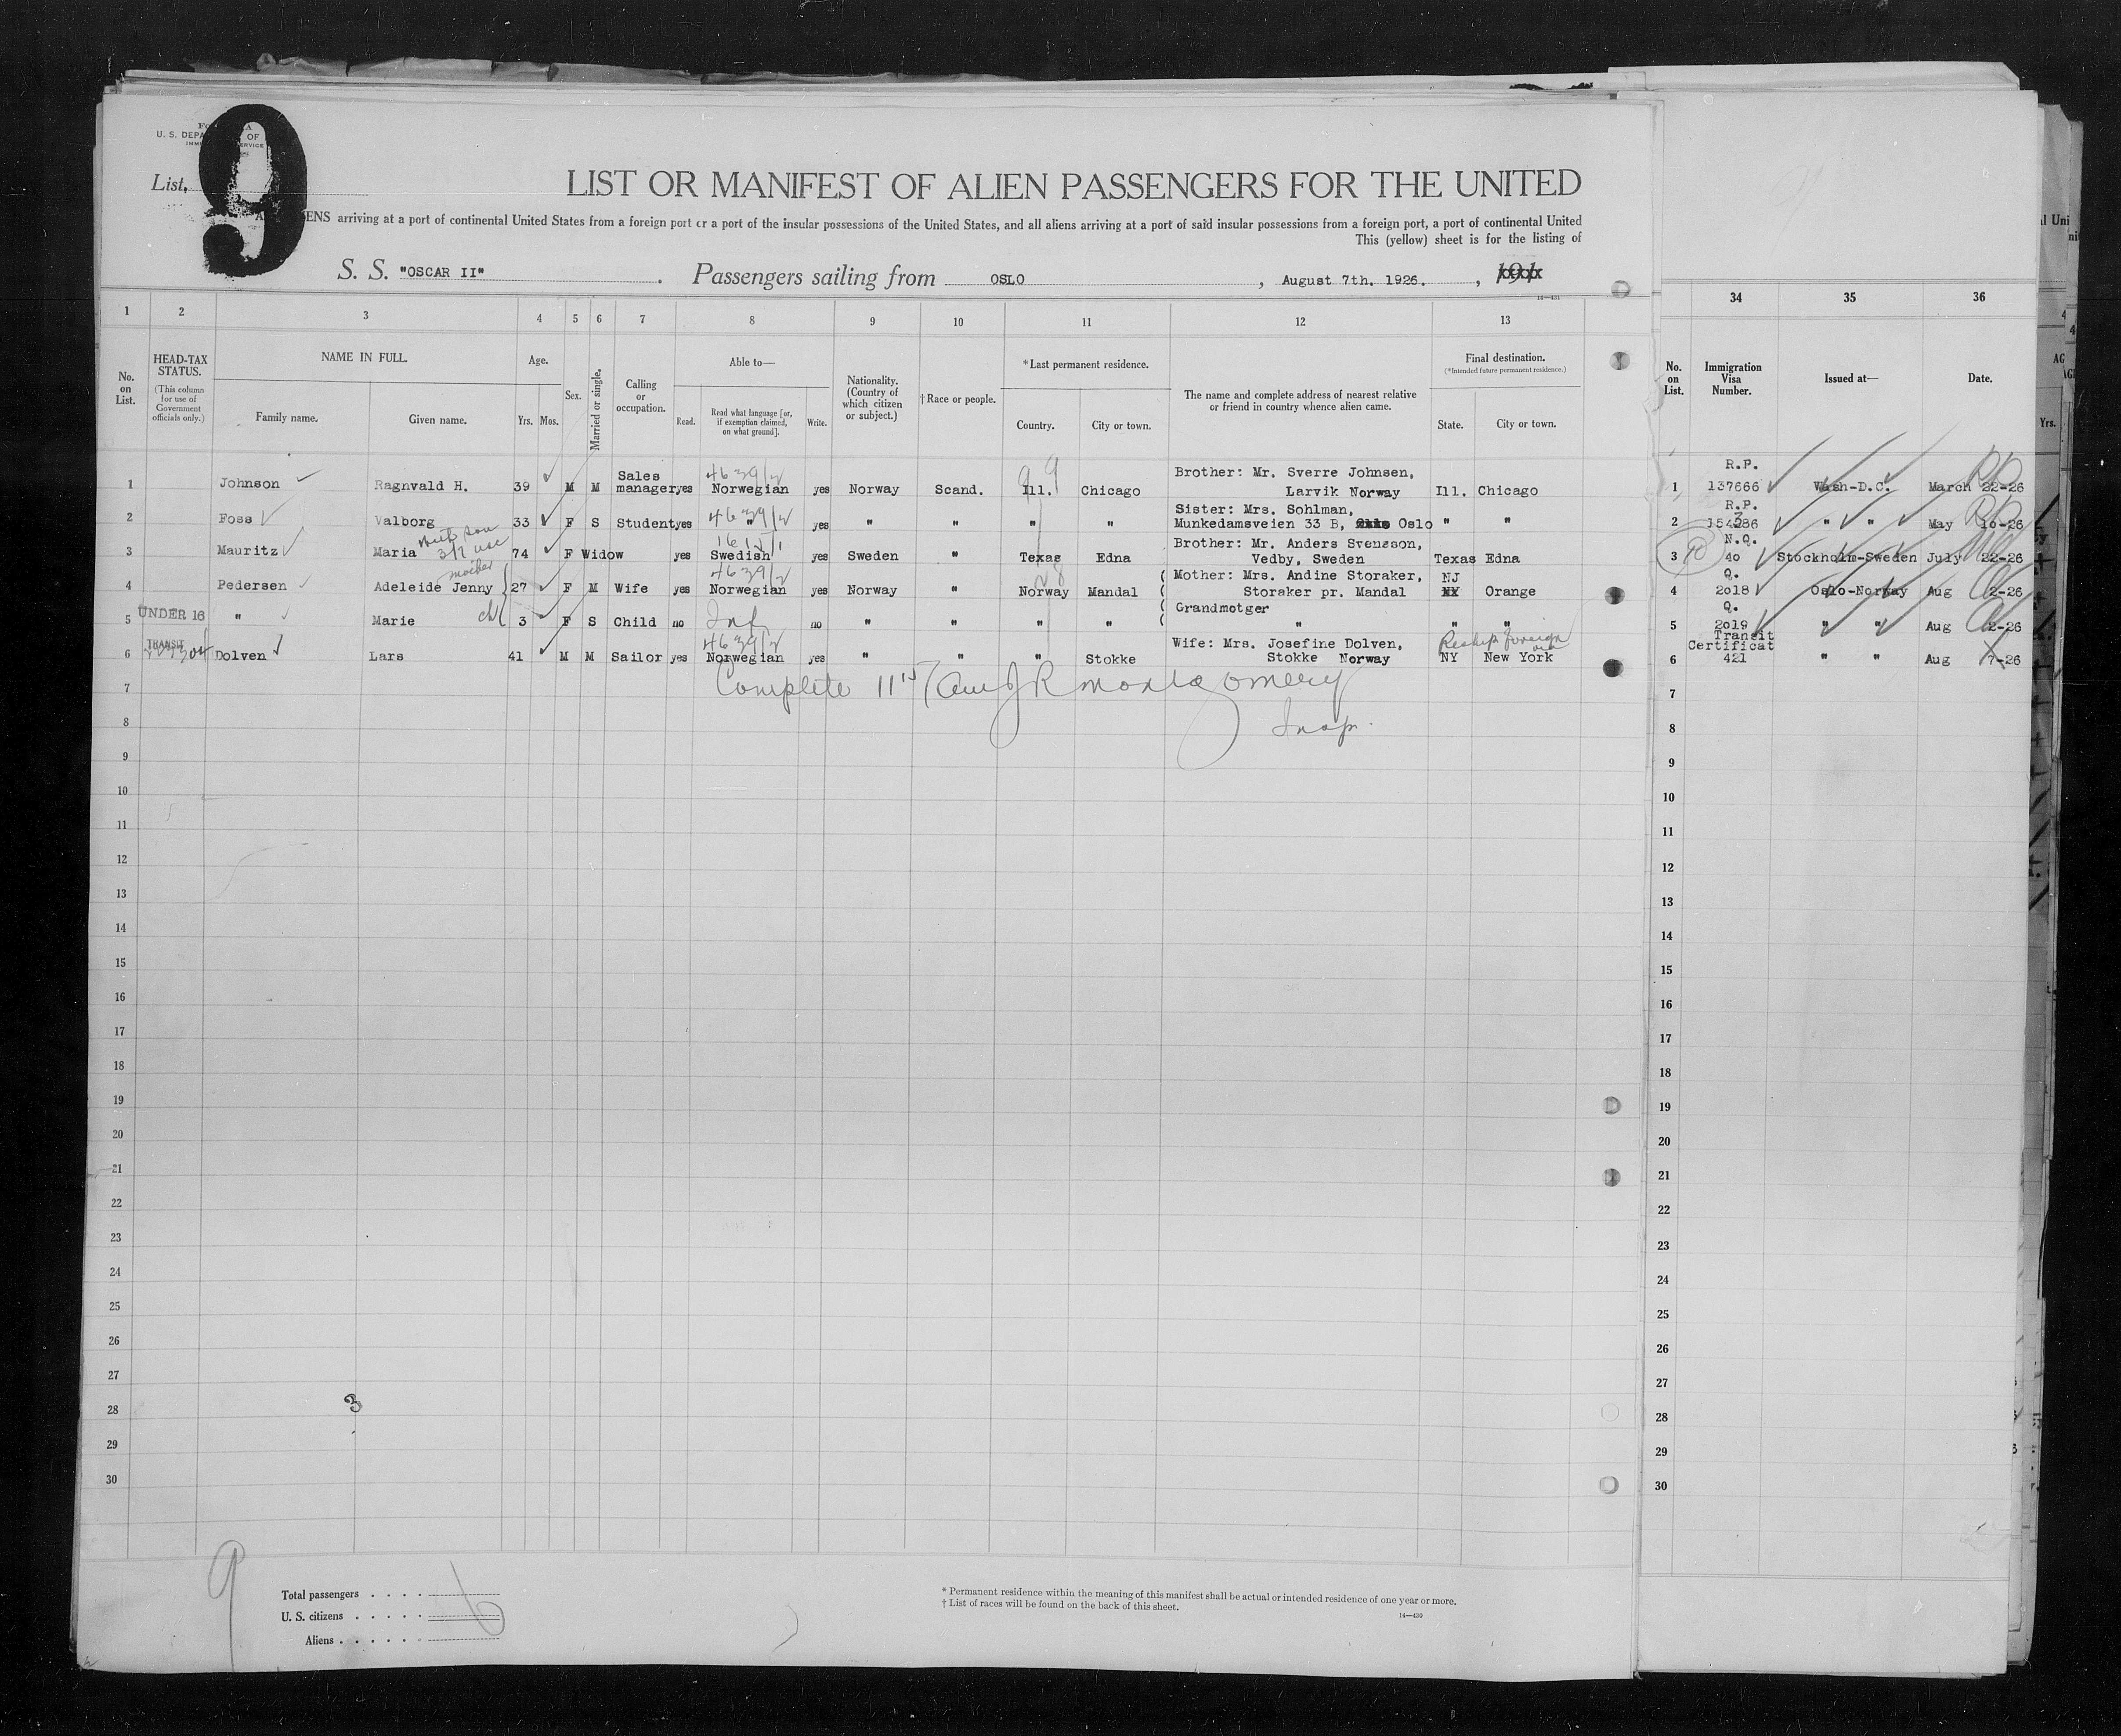 U. S. DEPA OF
9
List
LIST OR MANIFEST OF ALIEN PASSENGERS FOR THE UNITED
ENS arriving at a port of continental United States from a foreign port or a port of the insular possessions of the United States, and all aliens arriving at a port of said insular possessions from a foreign port, a port of continental United
This (yellow) sheet is for the listing of
S. S. "OSCAR II" . Passengers sailing from OSLO , August 7th. 1926. ,
1 2 3 4 5 6 7 8 9 10 11 12 13 34 35 36
No. on List.
HEAD-TAX STATUS.
(This column for use of Government officials only.)
NAME IN FULL.
Family name. Given name.
Age.
Yrs. Mos.
Sex.
Married or single.
Calling or occupation.
Able to—
Read. Read what language [or, if exemption claimed, on what ground]. Write.
Nationality. (Country of which citizen or subject.)
† Race or people.
* Last permanent residence.
Country. City or town.
The name and complete address of nearest relative or friend in country whence alien came.
Final destination.
(*Intended future permanent residence.)
State. City or town.
No. on List.
Immigration Visa Number.
Issued at—
Date.
1 Johnson Ragnvald H. 39 M M Sales manager yes Norwegian yes Norway Scand. Ill. Chicago Brother: Mr. Sverre Johnsen, Larvik Norway Ill. Chicago 1 R.P. 137666 Wash-D.C. March 22-26
2 Foss Valborg 33 F S Student yes " yes " " " " Sister: Mrs. Sohlman, Munkedamsveien 33 B, Oslo " " 2 R.P. 154386 " " May 10-26
3 Mauritz Maria 74 F Widow yes Swedish yes Sweden " Texas Edna Brother: Mr. Anders Svensson, Vedby, Sweden Texas Edna 3 N.Q. 40 Stockholm-Sweden July 22-26
4 Pedersen Adeleide Jenny mother 27 F M Wife yes Norwegian yes Norway " Norway Mandal Mother: Mrs. Andine Storaker, Storaker pr. Mandal NJ Orange 4 Q. 2018 Oslo-Norway Aug 2-26
5 UNDER 16 " Marie ch 3 F S Child no Inf no " " " " Grandmotger " " " 5 Q. 2019 " " Aug 2-26
6 TRANSIT Dolven Lars 41 M M Sailor yes Norwegian yes " " " Stokke Wife: Mrs. Josefine Dolven, Stokke Norway Reship foreign NY New York 6 Transit Certificat 421 " " Aug 7-26
7 Complete 11 15/ am J R Montgomery 7
8 Insp. 8
9 9
10 10
11 11
12 12
13 13
14 14
15 15
16 16
17 17
18 18
19 19
20 20
21 21
22 22
23 23
24 24
25 25
26 26
27 27
28 3 28
29 29
30 30
9
Total passengers . . . .
U. S. citizens . . . . . 6
Aliens . . . . . .
* Permanent residence within the meaning of this manifest shall be actual or intended residence of one year or more.
† List of races will be found on the back of this sheet.
14—430